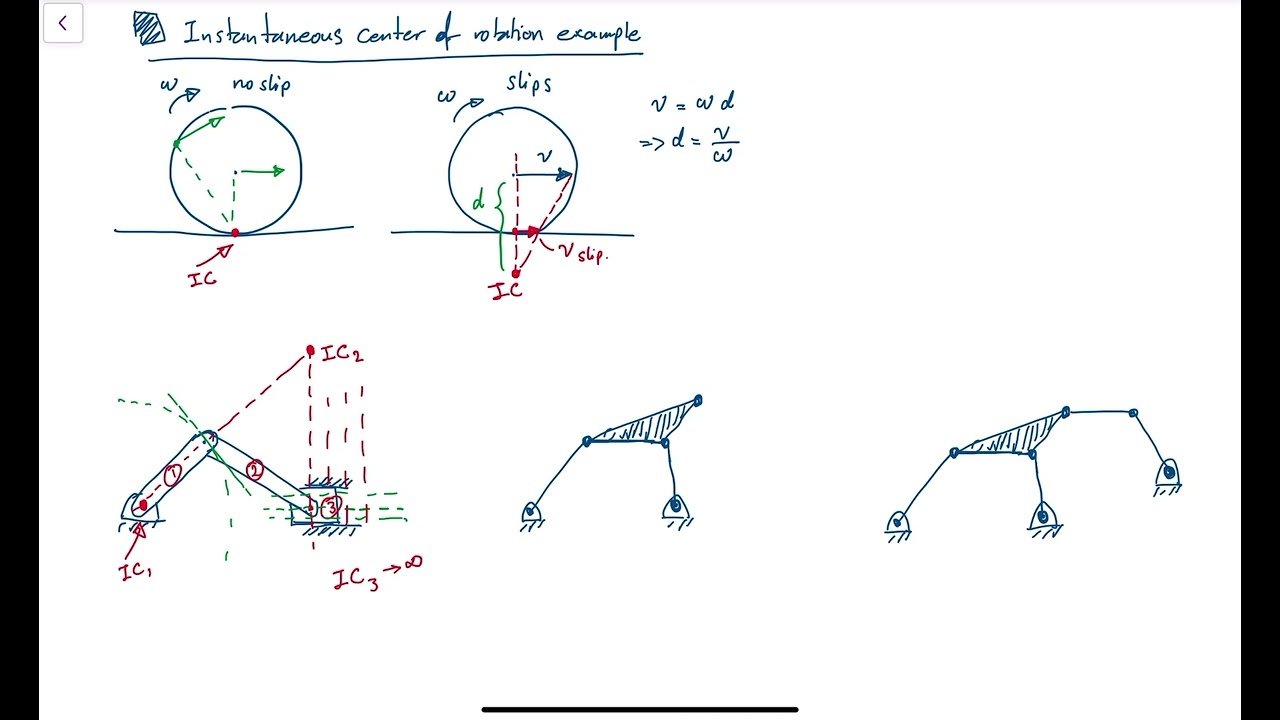 Instantaneous center of rotation example
ω no slip
ω slips
v
d
v = ω d
=> d = v/ω
v slip.
IC
IC
IC₂
①
②
③
IC₁
IC₃ → ∞